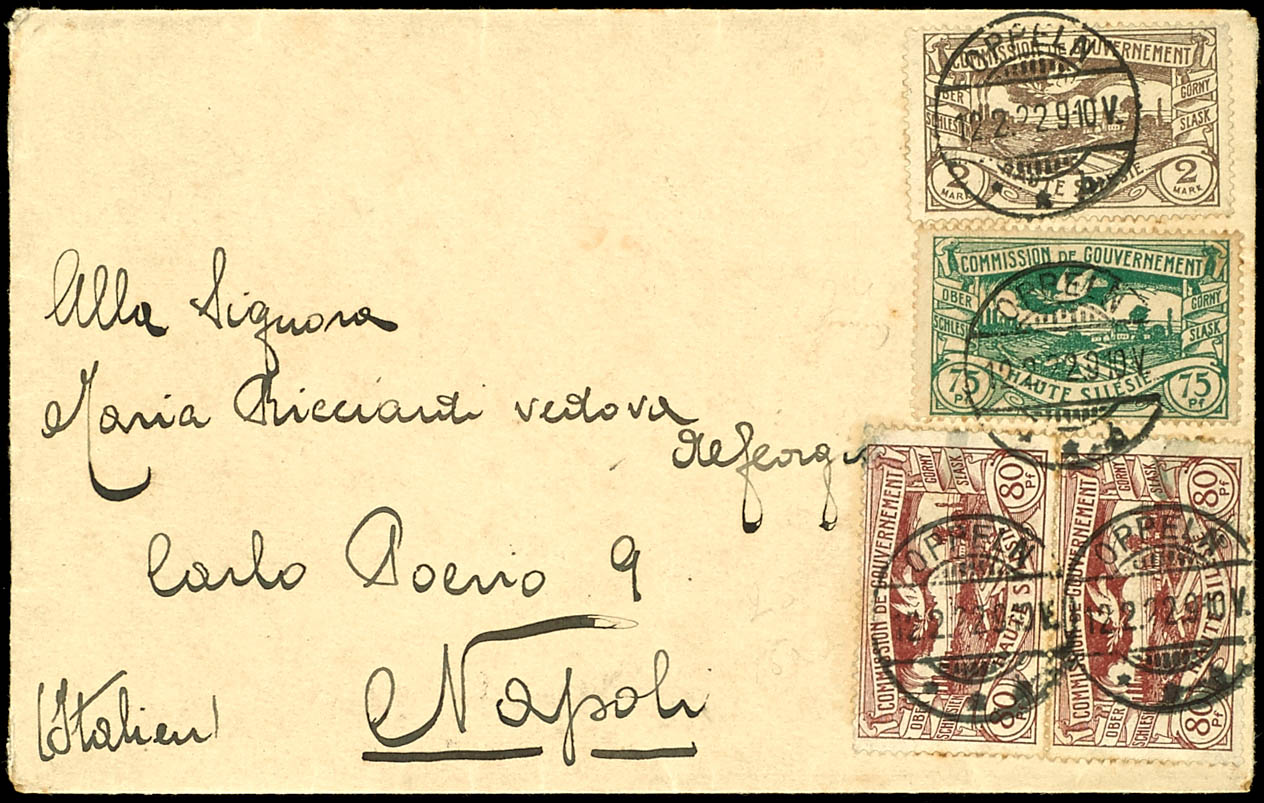 Alla Signora
Maria Ricciardi vedova
de Georgi
Carlo Poerio 9
Napoli
(Italien)
COMMISSION DE GOUVERNEMENT
OBER SCHLESIEN
GORNY SLASK
HAUTE SILESIE
2 MARK
2 MARK
OPPELN
12.2.22.9-10 V.
* * b
COMMISSION DE GOUVERNEMENT
OBER SCHLESIEN
GORNY SLASK
HAUTE SILESIE
75 Pf
75 Pf
OPPELN
12.2.22.9-10 V.
* * b
COMMISSION DE GOUVERNEMENT
OBER SCHLESIEN
GORNY SLASK
HAUTE SILESIE
80 Pf
80 Pf
OPPELN
12.2.22.9-10 V.
COMMISSION DE GOUVERNEMENT
OBER SCHLESIEN
GORNY SLASK
HAUTE SILESIE
80 Pf
80 Pf
OPPELN
12.2.22.9-10 V.